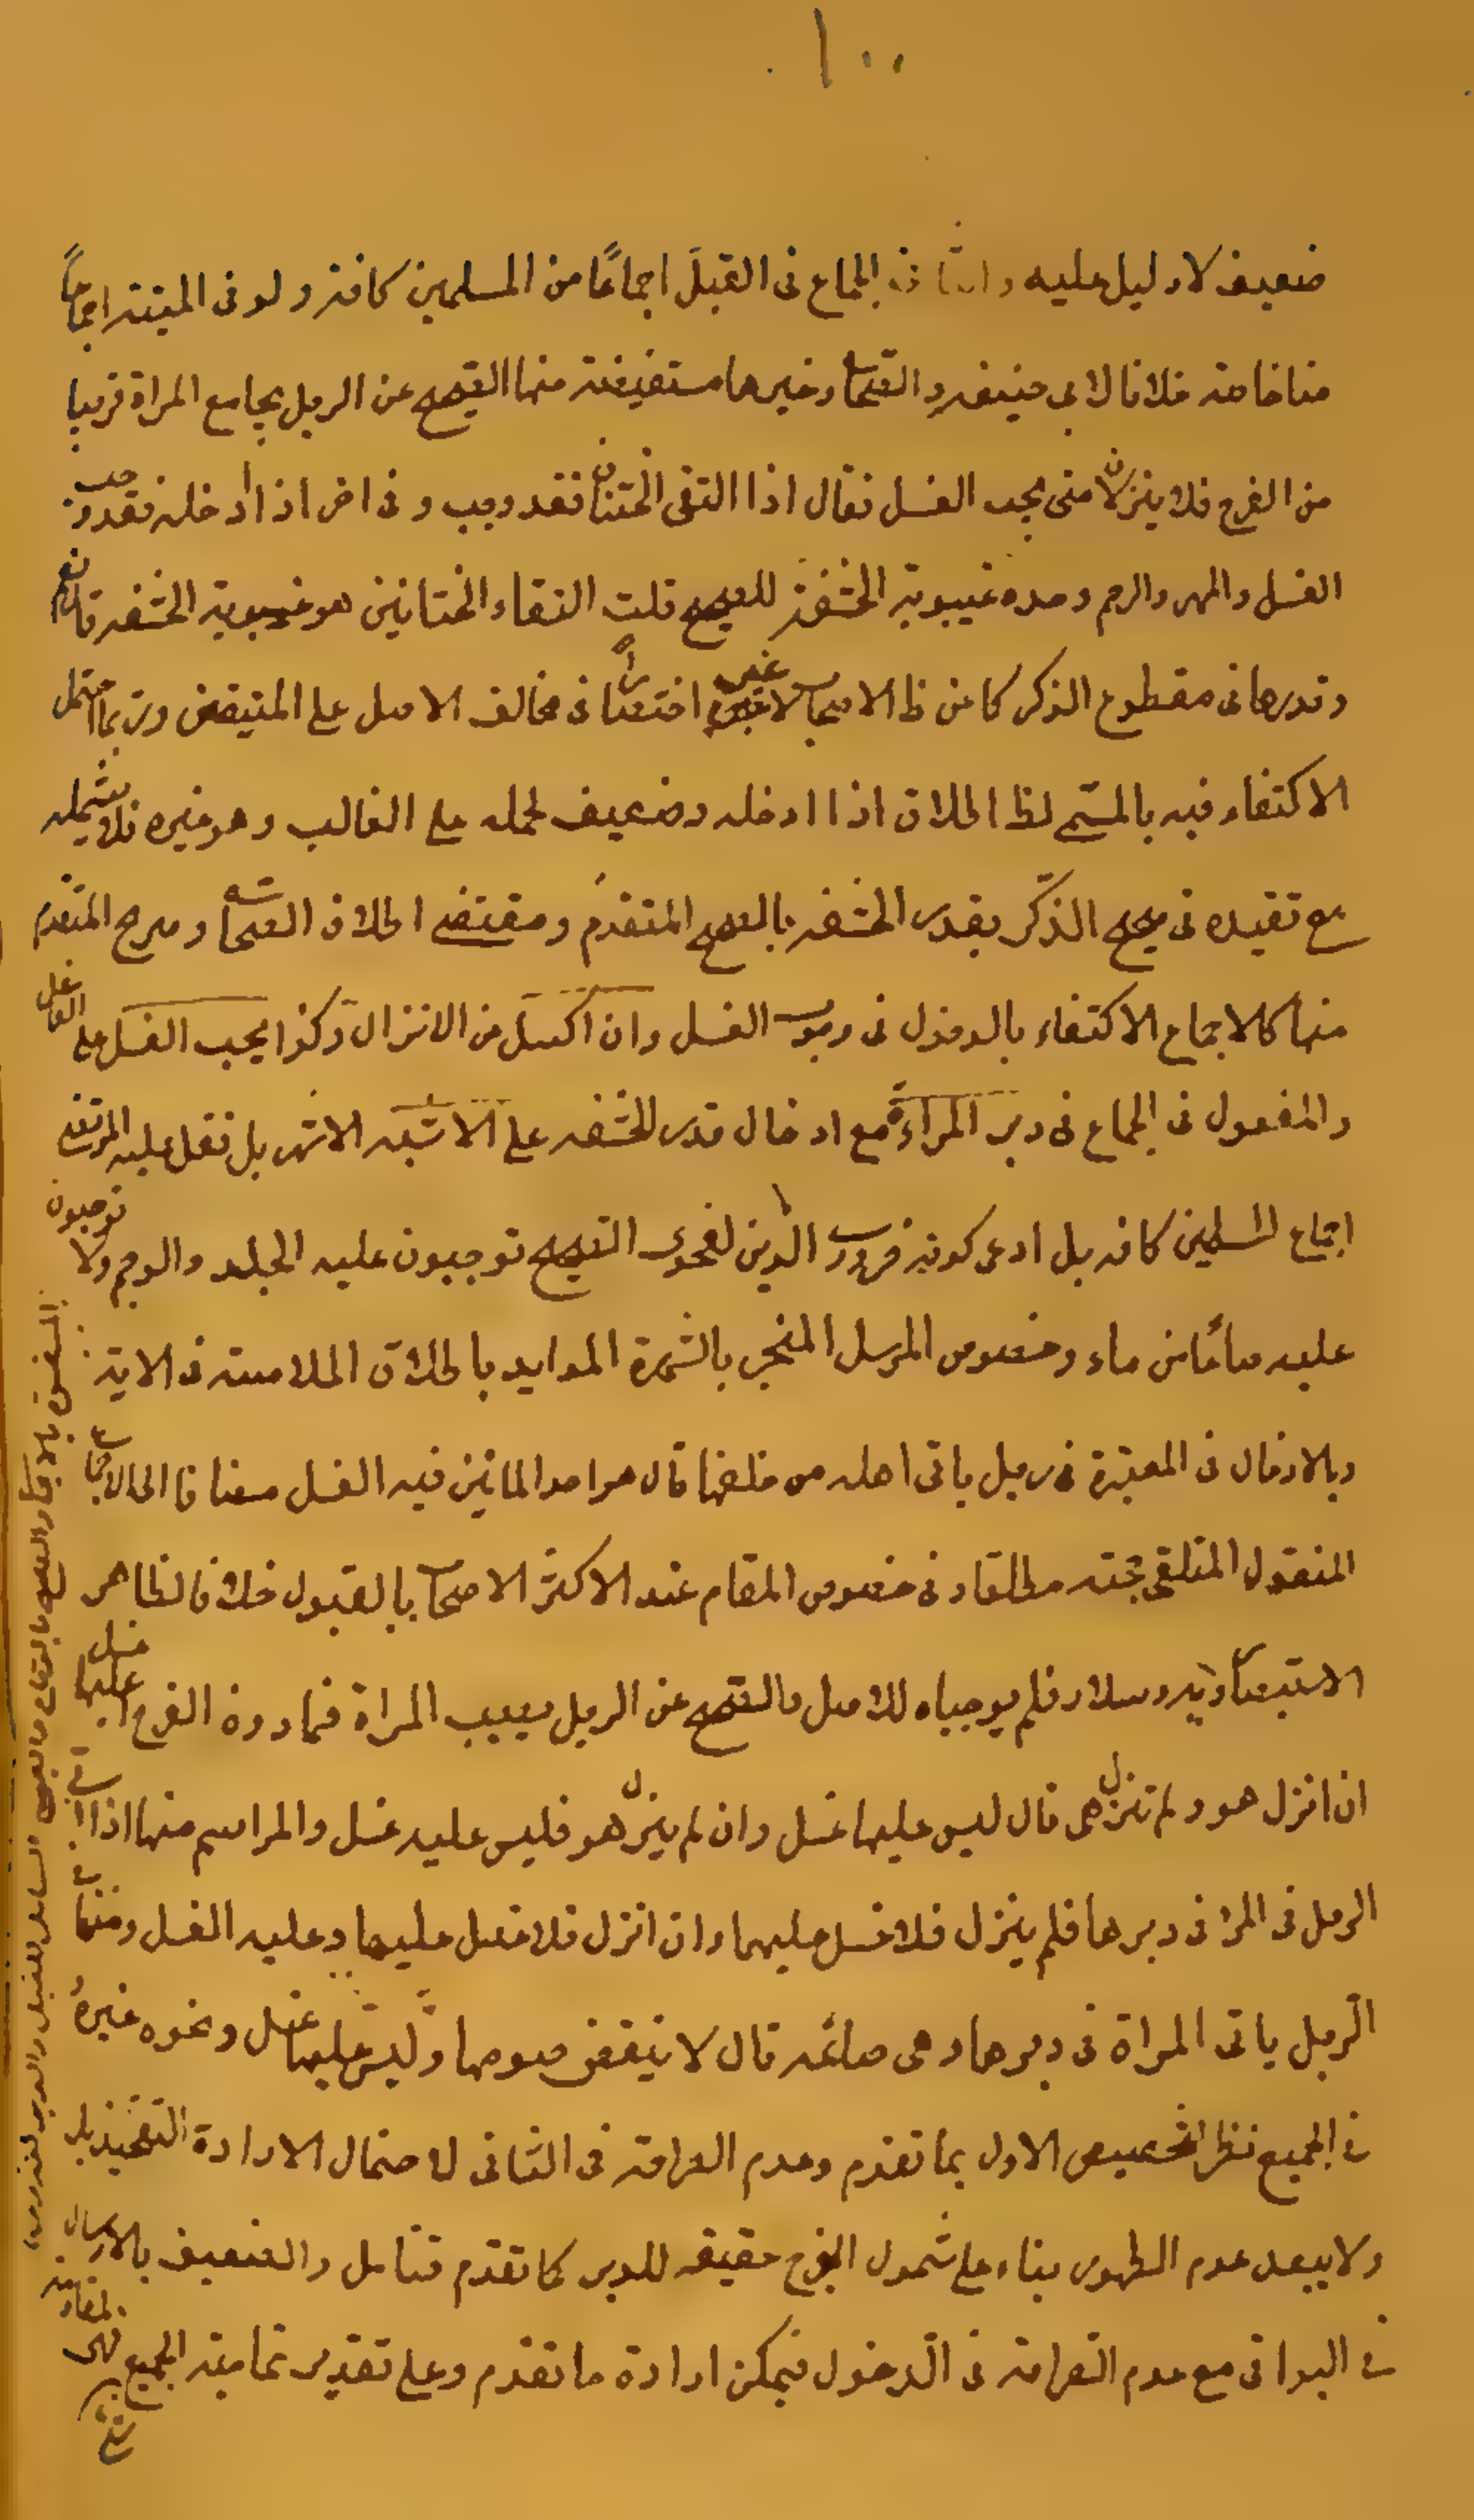 ١٠٠
ضعيف لا دليل عليه والثاني الجماع في القبل اجماعًا من المسلمين كافة ولو في الميتة اجماعًا
منا خاصة خلافا لابي حنيفة والصحاح وغيرها مستفيضة منها الصحيح عن الرجل يجامع المراة قريبا
من الفرج فلا ينزلان متى يجب الغسل فقال اذا التقى الختانان فقد وجب وفي اخر اذا ادخله فقد وجب
الغسل والمهر والرجم وحده غيبوبة الحشفة للصحيح قلت التقاء الختانين هو غيبوبة الحشفة قال نعم
وقدرها في مقطوع الذكر كما عن ظا الاصحاب لا غير اقتصارًا في مخالف الاصل على المتيقن وربما احتمل
الاكتفاء فيه بالمسمى لظا اطلاق اذا ادخله وضعيف لحمله على الغالب وهو غيره فلا يشمله
مع تقييده في صحيح الذكر بقدر الحشفة بالصحيح المتقدم ومقتضى اطلاق الصحاح وصرح المتقدم
منها كالاجماع الاكتفاء بالدخول في وجوب الغسل وان اكسل من الانزال وكذا يجب الغسل على الفاعل
والمفعول في الجماع في دبر المراءة مع ادخال قدر الحشفة على الاشبه الاشهر بل نقل عليه المرتضى
اجماع المسلمين كافة بل ادعى كونه ضرورت الدين لفحوى الصحيح توجبون عليه الجلد والرجم ولا توجبون
عليه صاعًا من ماء وخصوص المرسل المنجبر بالشهرة المؤيد باطلاق الملامسة في الاية
وبالادخال في المعتبرة في رجل ياتي اهله من خلفها قال هو احد الماتيين فيه الغسل مضافا الى الاجماع
المنقول المتلقى حجته مطلقا وفي خصوص المقام عند الاكثر الاصحاب بالقبول خلافا لظاهر
الاستبصار ويه وسلار فلم يوجباه للاصل والصحيح عن الرجل يصيب المراة فيما دون الفرج اعليها غسل
ان انزل هو ولم تنزل هي قال ليس عليها غسل وان لم ينزل هو فليس عليه غسل والمراسيم منها اذا اتى
الرجل في المراة في دبرها فلم ينزل فلا غسل عليهما وان انزل فلا غسل عليها وعليه الغسل ومنها
الرجل ياتي المراة في دبرها وهي صائمة قال لا ينقض صومها وليس عليها غسل ونحوه غيره
في الجميع نظر لتخصيص الاول بما تقدم وعدم الصراحة في الثاني لاحتمال الارادة التفخيذ بل
ولا يبعد عدم الظهور بناء على شمول الفرج حقيقة للدبر كما تقدم فتامل والضعيف بالارسال
في البواقي مع عدم الصراحة في الدخول فيمكن ارادة ما تقدم وعلى تقدير تمامية الجميع فهي